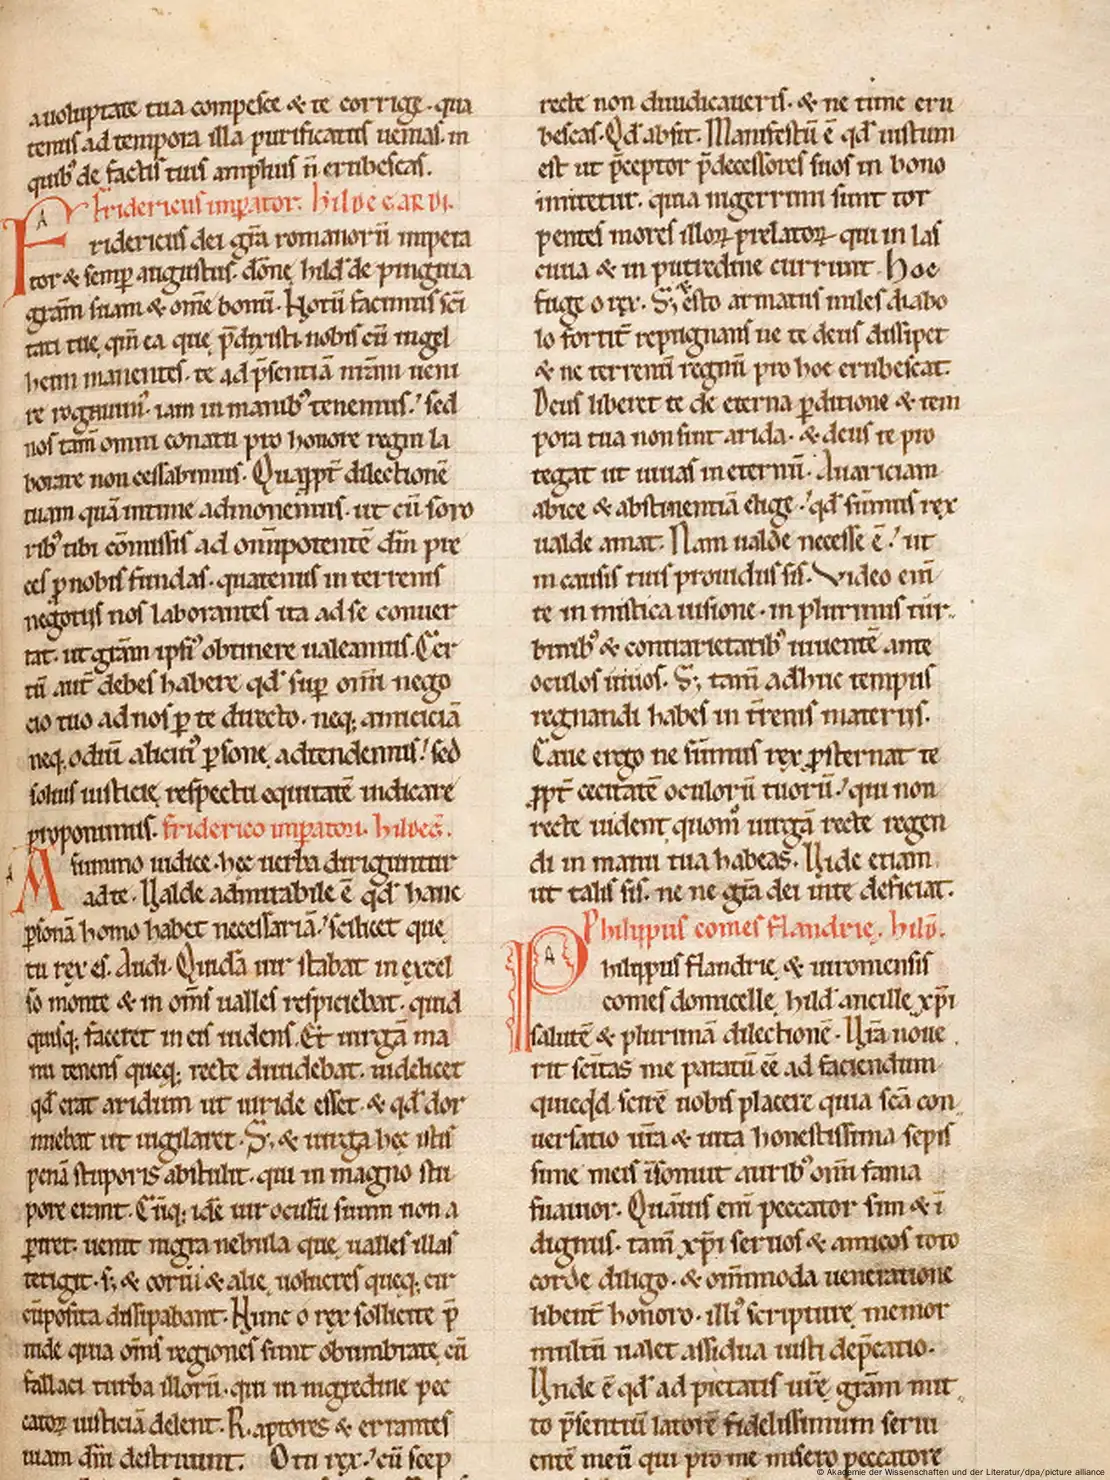 a uoluptate tua compesce & te corrige. qua
tenus ad tempora illa purificatus uenias. in
quib᷒ de factis tuis amplius n̄ erubescas.
Fridericus imꝑator. hildegardi.
Fridericus dei gr̄a romanorū impera
tor & semꝑ augustus. dōne hild᷒ de pinguia
grām suam & om̄e bonū. Notū facimus sc̄i
tati tue, qm̄ ea que p̄dixisti nobis cū ingel
heim manentes. te ad p̄sentiā nr̄am ueni
re rogauim᷒. iam in manib᷒ tenemus. sed
nos tam̄ omni conatu pro honore regni la
borare non cessabimus. Quapp̄t dilectionē
tuam quā intime admonemus. ut cū soro
rib᷒ tibi cōmissis ad om̄ipotentē dm̄ pre
ces ꝓ nobis fundas. quatenus in terrenis
negotiis nos laborantes ita ad se conuer
tat. ut grām ipsi᷒ obtinere ualeamus. Cer
tū aut̄ debes habere qd᷒ suꝑ om̄i nego
cio tuo ad nos ꝑ te directo. neq; amiciciā
neq; odiū alicui᷒ ꝑsone, adtendemus! sed
solius iusticie respectu equitatē iudicare
proponimus. friderico imꝑatori. hildeḡ.
A summo iudice hec uerba diriguntur
ad te. Ualde admirabile ē qd᷒ hanc
ꝑsonā homo habet necessariā. scilicet que
tu rex es. Audi. Quidā uir stabat in excel
so monte & in om̄s ualles respiciebat. quid
quisq; faceret in eis uidens. Et uirgā ma
nu tenens queq; recte diuidebat. uidelicet
qd᷒ erat aridum ut uiride esset. & qd᷒ dor
miebat ut uigilaret. S; & uirga hec istis
penā stuporis abstulit. qui in magno stu
pore erant. Cūq; idē uir oculū suum non a
ꝑiret. uenit nigra nebula que ualles illas
tetigit. s; & corui & alie uolucres queq; cir
cūposita dissipabant. Nunc o rex sollicite p̄
uide quia om̄s regiones sunt obumbrate, cū
fallaci turba illorū. qui in nigredine pec
catoꝝ iusticiā delent. Raptores & errantes
uiam dm̄ destruunt. O tu rex! cū scep
recte non diiudicaueris. & ne tunc eru
bescas. Qd᷒ absit. Manifestū ē qd᷒ iustum
est ut p̄ceptor p̄decessores suos in bono
imitetur. quia nigerrimi sunt tor
pentes mores illoꝝ prelatoꝝ qui in las
ciuia & in putredine currunt. Hoc
fuge o rex. S; esto armatus miles diabo
lo fortit̄ repugnans ne te deus dissipet
& ne terrenū regnū pro hoc erubescat.
Deus liberet te de eterna ꝑditione & tem
pora tua non sint arida. & deus te pro
tegat ut uiuas in eternū. Auariciam
abice & abstinentiā elige! qd᷒ sūmus rex
ualde amat. Nam ualde necesse ē! ut
in causis tuis prouidus sis. Video em̄
te in mistica uisione. in plurimis tur
binib᷒ & contrarietatib᷒ uiuentē ante
oculos uiuos. S; tam̄ adhuc tempus
regnandi habes in t̄renis materiis.
Caue ergo ne sūmus rex ꝓsternat te
ꝓpt̄ cecitatē oculorū tuorū! qui non
recte uident quom᷒ uirgā recte regen
di in manu tua habeas. Uide etiam
ut talis sis. ne ne gr̄a dei in te deficiat.
Philippus comes flandrie. hild̄.
Philippus flandrie & uiromensis
comes domicelle, hild᷒ ancille xp̄i
salutē & plurimā dilectionē. Ur̄a noue
rit sc̄itas me paratū eē ad faciendum
quicqd᷒ scirē uobis placere quia sc̄a con
uersatio ur̄a & uita honestissima sepis
sime meis īsonuit aurib᷒ om̄i fama
suauior. Quāuis em̄ peccator sim & ī
dignus. tam̄ xp̄i seruos & amicos toto
corde diligo. & om̄imoda ueneratione
libent̄ honoro. illi᷒ scripture, memor
multū ualet assidua iusti dep̄catio.
Unde ē qd᷒ ad pietatis ur̄e, grām mit
to p̄sentiū latorē fidelissimum serui
entē meū qui pro me misero peccatore
© Akademie der Wissenschaften und der Literatur/dpa/picture alliance